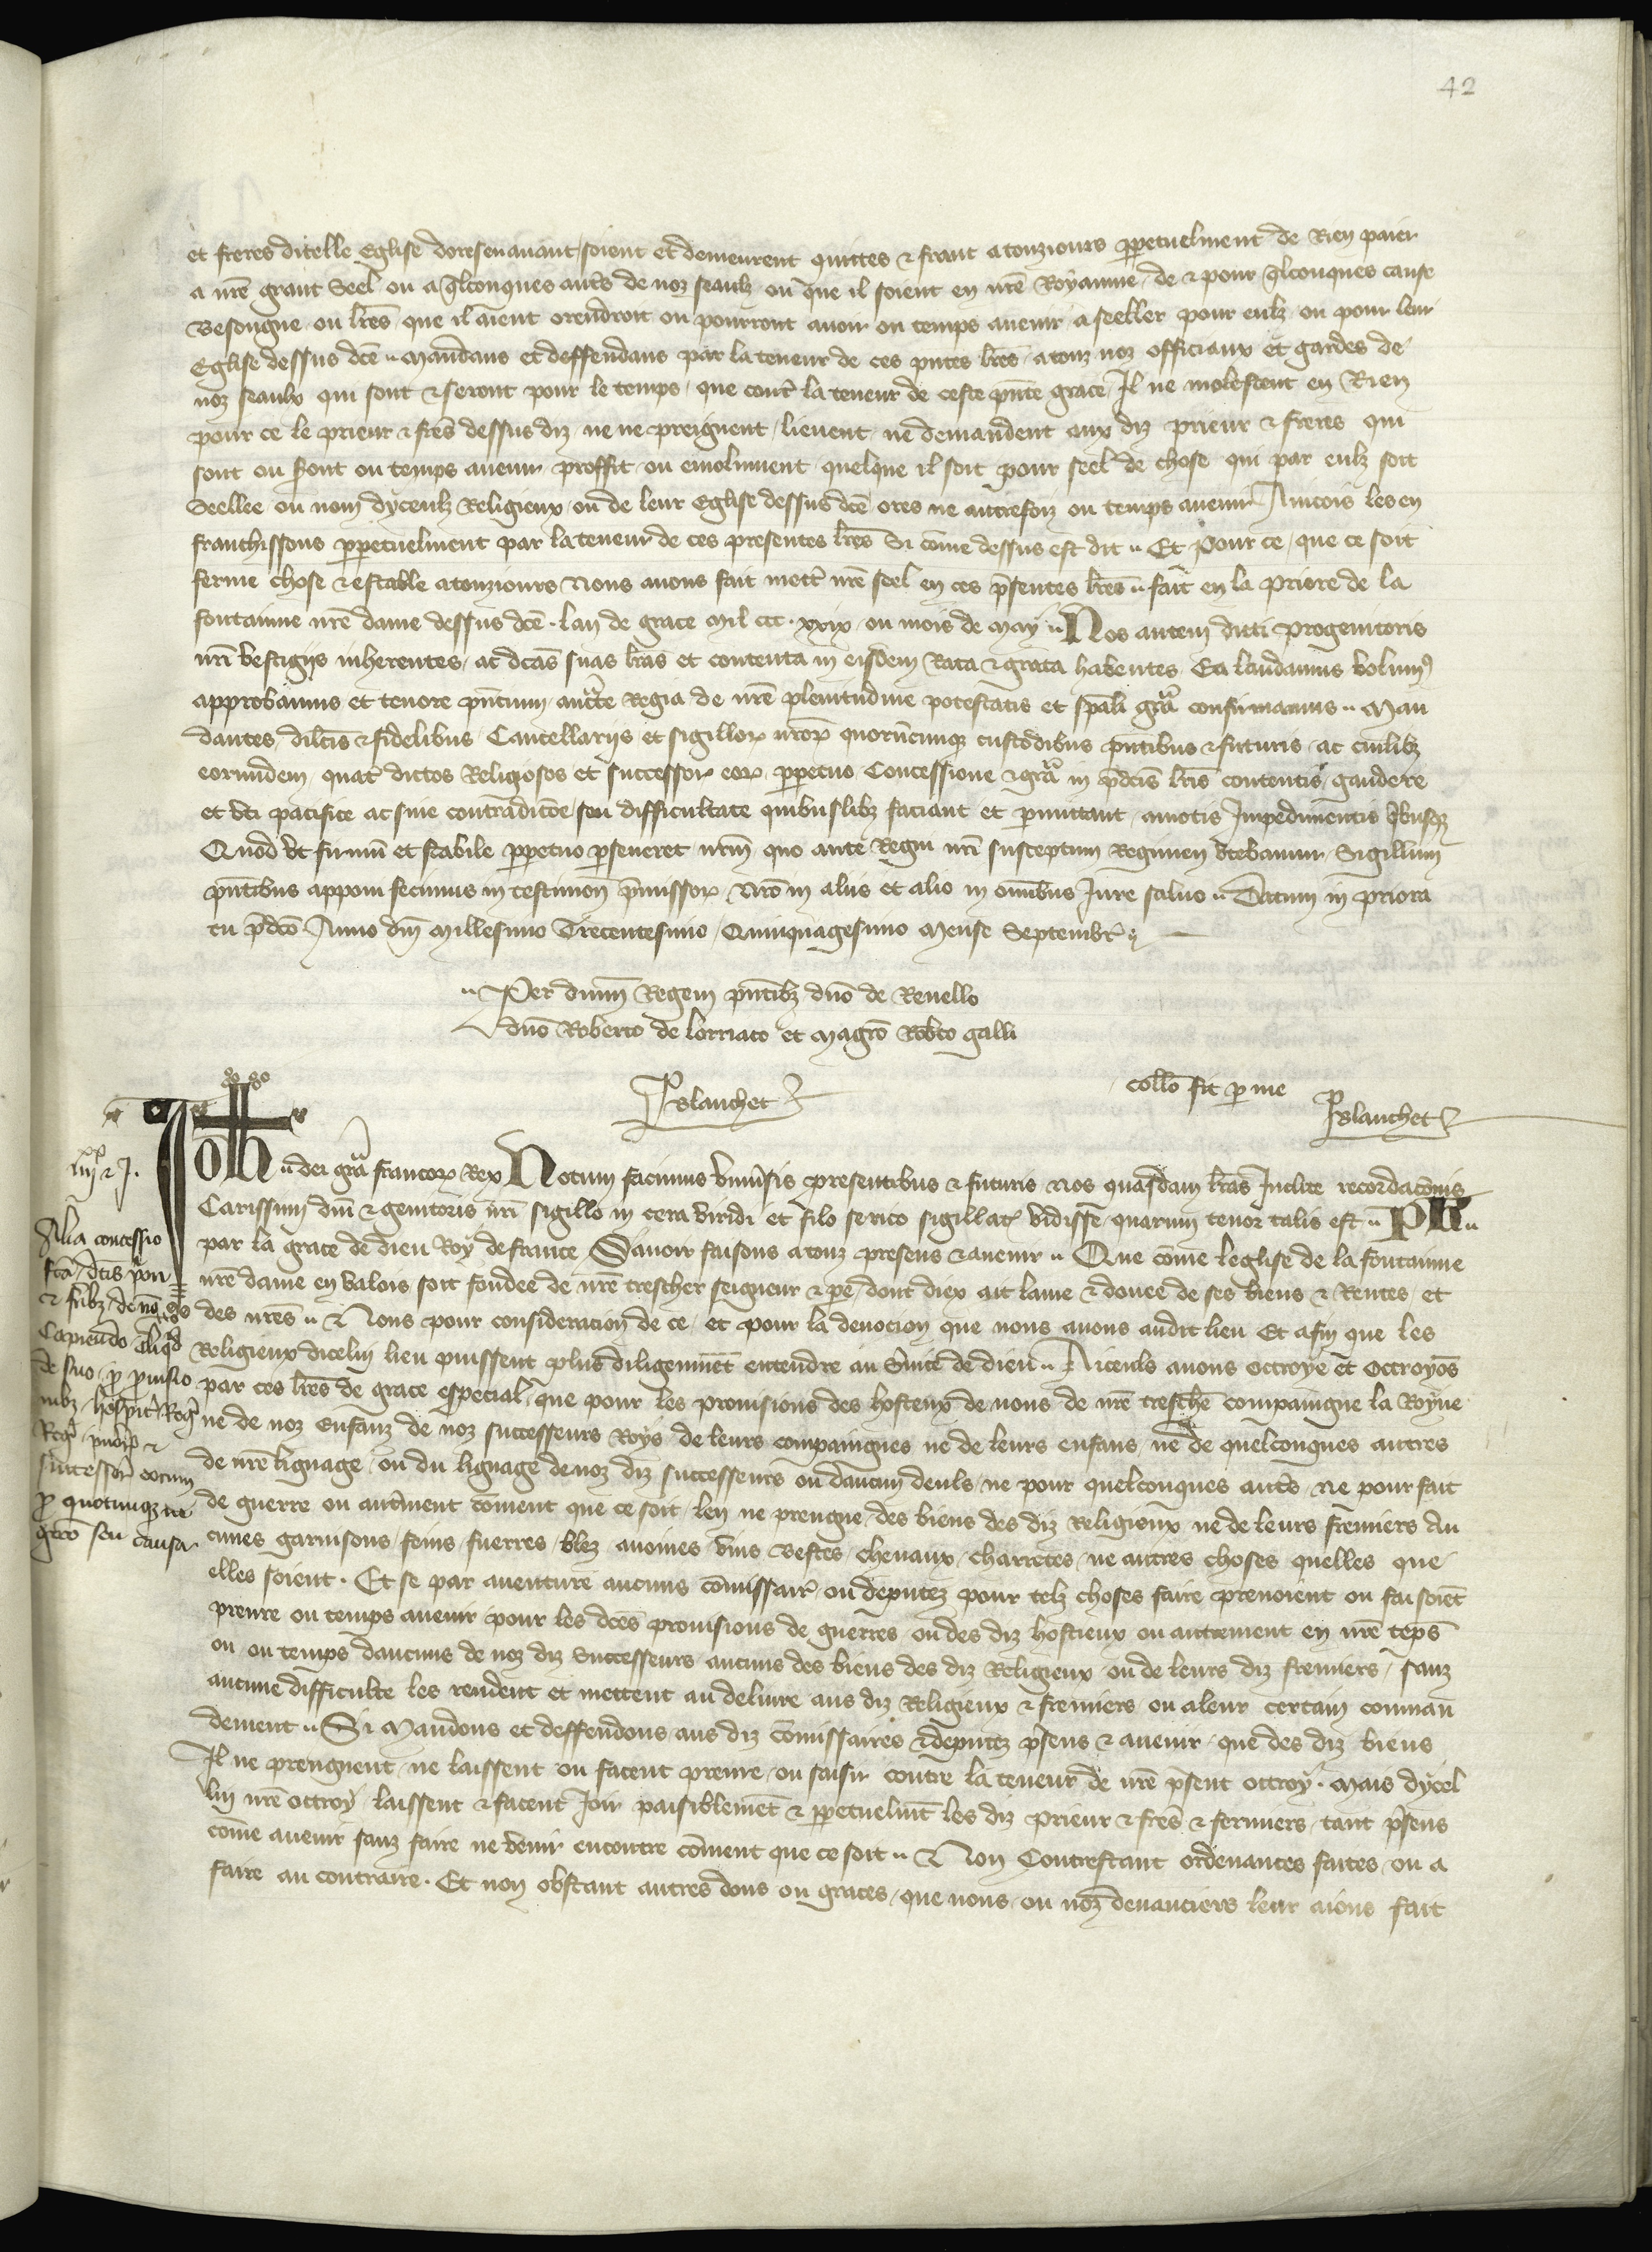 42
et freres dicelle Eglise doresenavant soient et demeurent quittes & franc a touziours ppetuelment de Rien paier
a nre grant Seel ou a qlconques autres de noz seaulz ou que il soient en nre Royaume de & pour qlconques cause
Besongne ou lres que il aient orendroit ou pourront avoir ou temps avenir a seeller pour eulz ou pour leur
Eglise dessus dce Mandans et deffendans par la teneur de ces pntes lres a touz noz officiaux et gardes de
noz seaulx qui sont & seront pour le temps que contr la teneur de ceste pnte grace Il ne molestent en Rien
pour ce le prieur & fres dessus diz ne ne preignent lievent ne demandent aux diz prieur & freres qui
sont ou sont ou temps avenir proffit ou emolument quelque il soit pour seel de chose qui par eulz soit
Seellee ou nom dyceulz Religieux ou de leur Eglise dessus dce ores ne autrefoiz ou temps avenir Aincois les en
franchissons ppetuelment par la teneur de ces presentes lres Si come dessus est dit Et pour ce que ce soit
ferme chose & estable a touziours Nous avons fait mettr nre seel en ces psentes lres fait en la priore de la
fontainne nre dame dessus dce lan de grace Mil ccc xxix ou mois de May Nos autem dicti progenitoris
nri vestigiis inherentes ac dcas suas lras et contenta in eisdem Rata & grata habentes Ea laudamus volum9
approbamus et tenore pntium aucte Regia de nre plenitudine potestatis et spali gra confirmamus Man
dantes dilcis & fidelibus Cancellariis et sigillor nror quorucunq custodibus pntibus & futuris ac cuilibz
eorundem quat dictos Religiosos et successor eor ppetuo Concessione & gra in pdcis lris contentis gaudere
et uti pacifice ac sine contradicoe seu difficultate quibuslibz faciant et pmittant amotis Impedimentis qbusq
Quod ut firmu et stabile ppetuo pseveret nrm quo ante Regni nri susceptum Regimen utebamur Sigillum
pntibus apponi fecimus in testimon pmissor Nro in aliis et alio in omibus Jure salvo Datum in priora
tu pdco Anno dni Millesimo Trecentesimo Quinquagesimo Mense Septembr
Per dnum Regem pntibz dno de Revello
dno Roberto de lorriaco et Magro Robto galli
Blanchet
collo fit p me
Blanchet
Joh dei gra francor Rex Notum facimus univsis presentibus & futuris Nos quasdam lras Inclite recordaconis
Carissimi dni & genitoris nri sigillo in cera viridi et filo serico sigillat vidisse quarum tenor talis est PH
par la grace de dieu Roy de france Savoir faisons a touz presens & avenir Que come leglise de la fontainne
nre dame en valois soit fondee de nre trescher seigneur & pe dont diex ait lame & douee de ses biens & Rentes et
des nres & Nous pour consideracion de ce et pour la devocion que nous avons audit lieu Et afin que les
Religieux dicelui lieu puissent plus diligemmet entendre au svice de dieu Aiceuls avons octroye et octroyos
par ces lres de grace especial que pour les provisions des hosteux de nous de nre tresche compaingne la Royne
ne de noz Enfanz de noz successeurs Roys de leurs compaingnes ne de leurs enfans ne de quelconques autres
de nre lignage ou du lignage de noz diz successeurs ou daucun deuls ne pour quelconques autres ne pour fait
de guerre ou autrment coment que ce soit len ne prengne des biens des diz Religieux ne de leurs fremiers Au
cunes garnisons foins fuerres blez avoines vins Bestes chevaux charretes ne autres choses quelles que
elles soient Et se par aventure aucuns comissair ou deputez pour telz choses faire prenoient ou faisoiet
prenre ou temps avenir pour les dces provisions de guerres ou des diz hostieux ou autrement en nre teps
ou ou temps daucuns de noz diz Successeurs aucuns des biens des diz Religieux ou de leurs diz fremiers sanz
aucune difficulte les rendent et mettent au delivre aus diz Religieux & fremiers ou a leur certain comman
dement Si Mandons et deffendons aus diz comissaires & deputez psens & avenir que des diz biens
Il ne prengnent ne laissent ou facent prenre ou saisir contre la teneur de nre psent octroy Mais dycel
lui nre octroy laissent & facent Joir paisiblemet & ppetuelmt les diz prieur & fres & fermiers tant psens
come avenir sanz faire ne venir encontre coment que ce soit & Non Contrestant ordenances faites ou a
faire au contraire Et non obstant autres dons ou graces que nous ou noz devanciers leur aions fait
iiii xx & J.
Alia concessio
fca dcis priori
& fribz de no
Capiendo aliqd
de suo p provisio
nibz hospit Regis
Regine &
successor eorum
p quocunqz ne
gcio seu causa